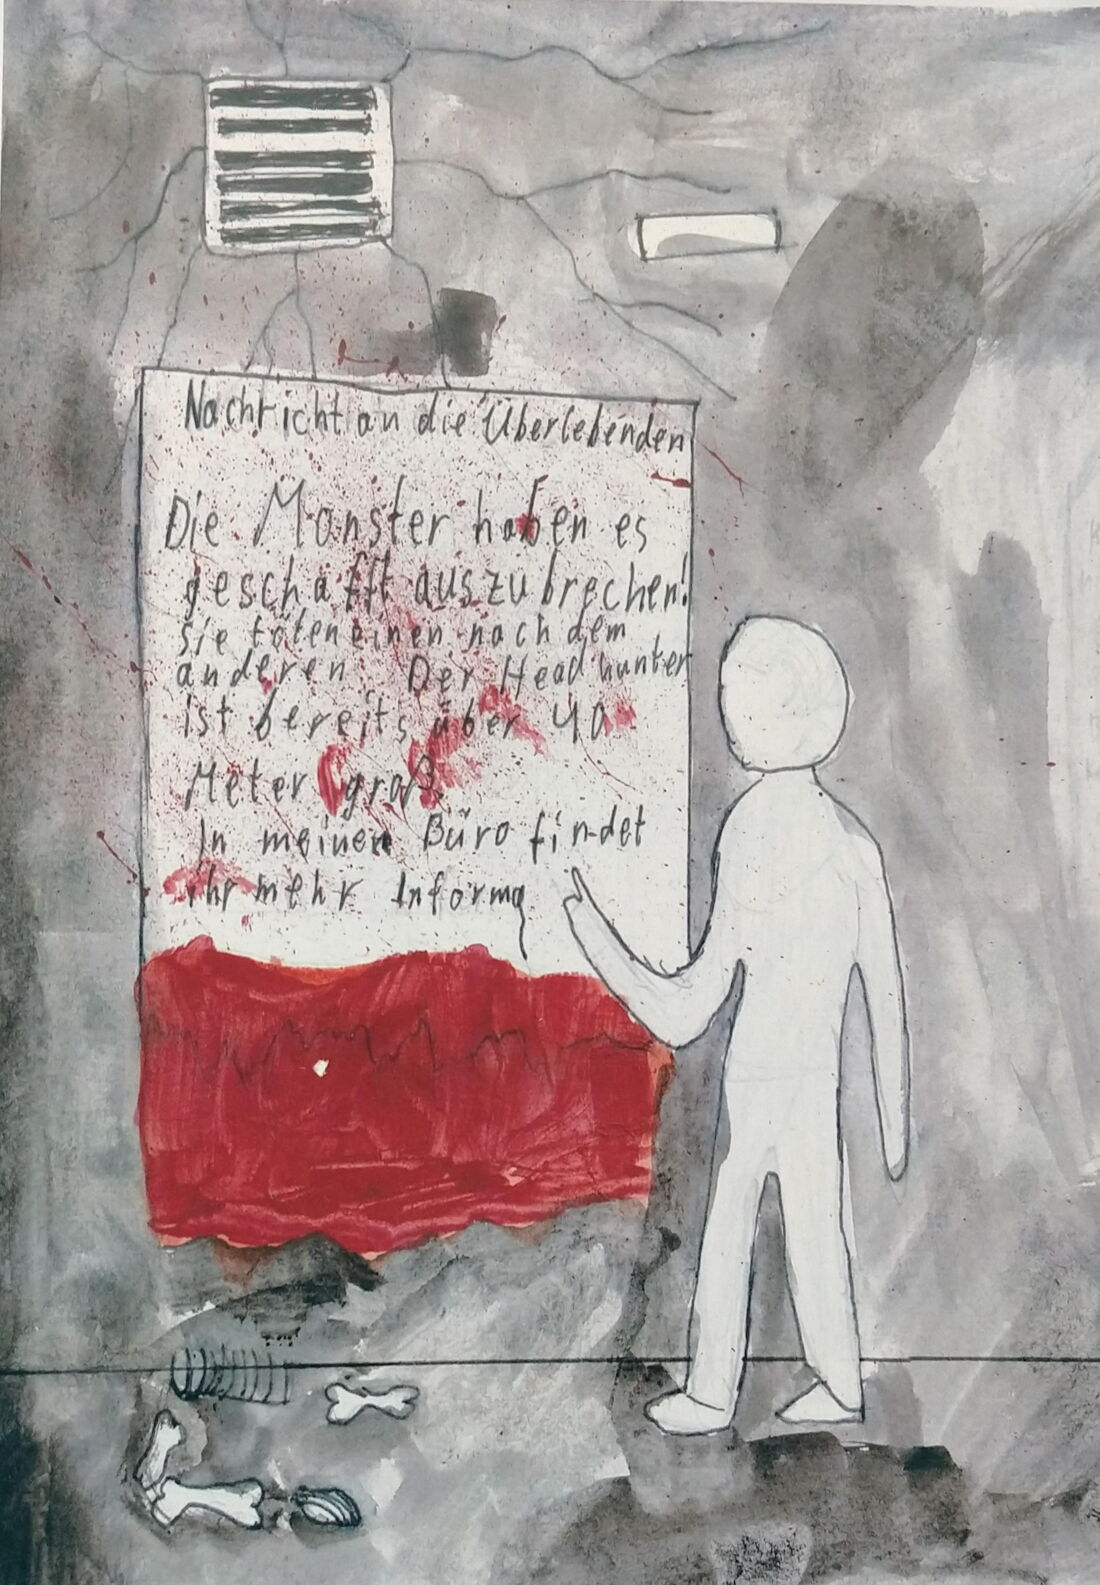 Nachricht an die Überlebenden
Die Monster haben es
geschafft auszubrechen!
Sie töten einen nach dem
anderen Der Headhunter
ist bereits über 40
Meter groß.
In meinen Büro findet
ihr mehr Informa